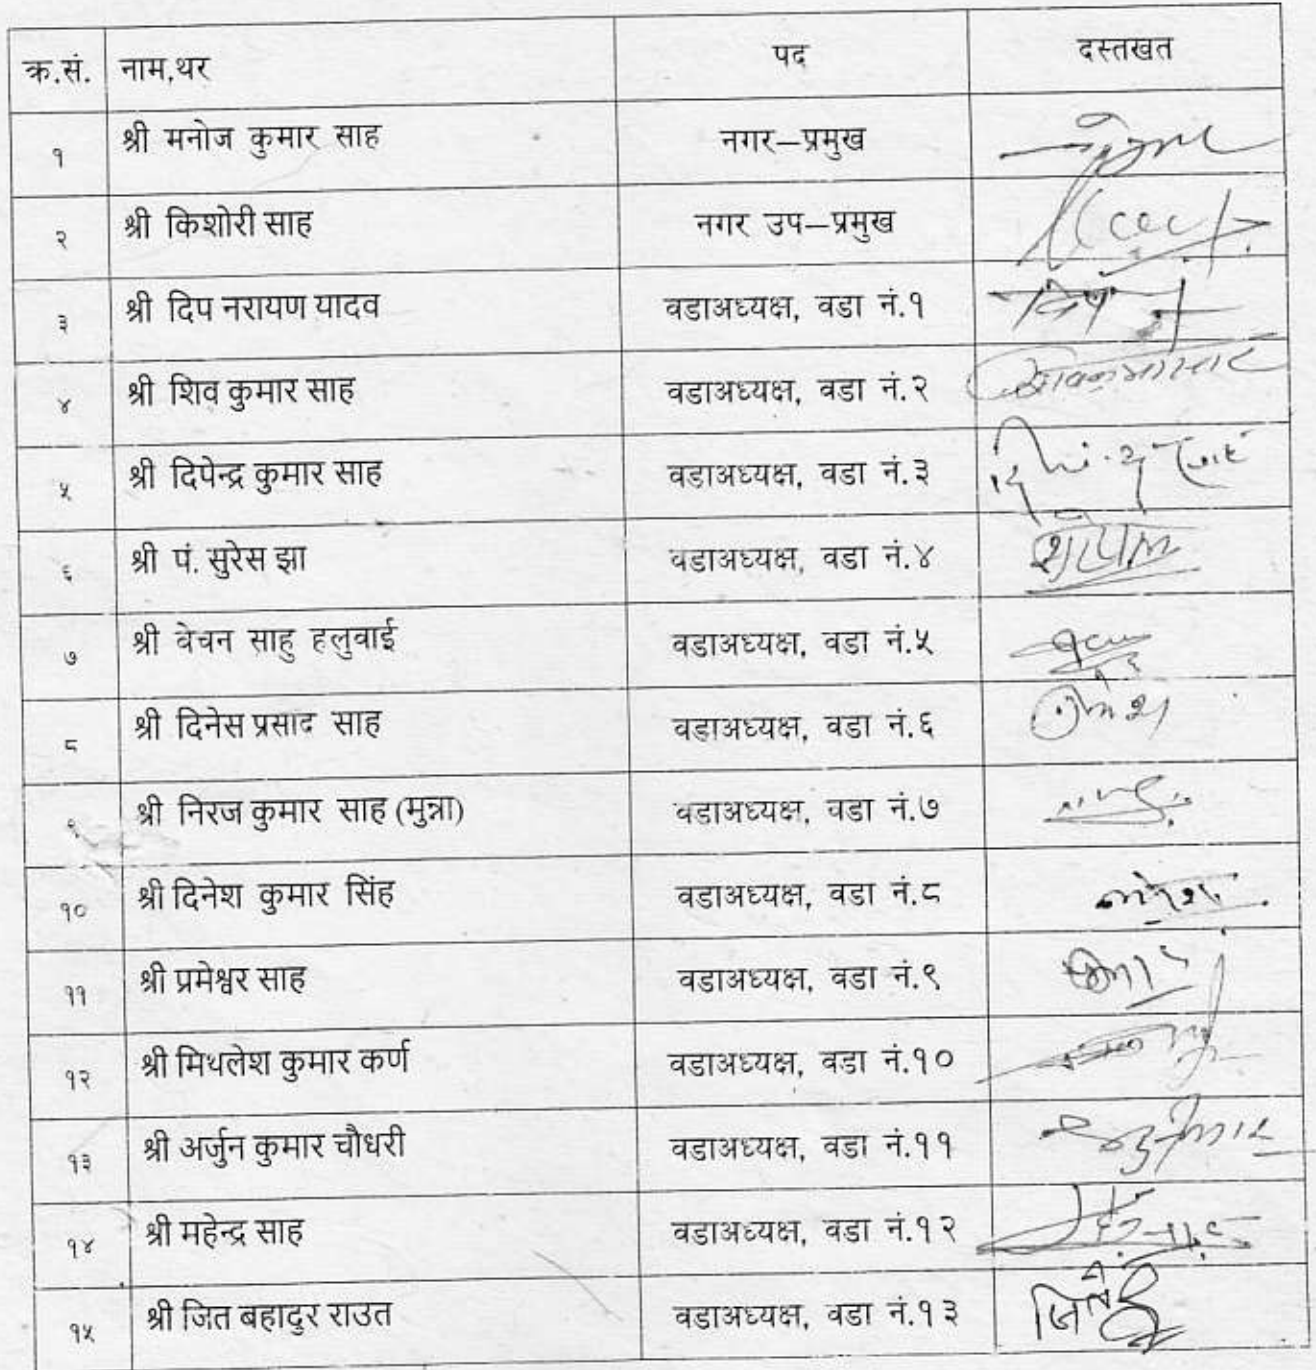 क्र.सं. नाम,थर पद दस्तखत
१ श्री मनोज कुमार साह नगर–प्रमुख
२ श्री किशोरी साह नगर उप–प्रमुख
३ श्री दिप नरायण यादव वडाअध्यक्ष, वडा नं.१
४ श्री शिव कुमार साह वडाअध्यक्ष, वडा नं.२
५ श्री दिपेन्द्र कुमार साह वडाअध्यक्ष, वडा नं.३
६ श्री पं. सुरेस झा वडाअध्यक्ष, वडा नं.४
७ श्री वेचन साहु हलुवाई वडाअध्यक्ष, वडा नं.५
८ श्री दिनेस प्रसाद साह वडाअध्यक्ष, वडा नं.६
९ श्री निरज कुमार साह (मुन्ना) वडाअध्यक्ष, वडा नं.७
१० श्री दिनेश कुमार सिंह वडाअध्यक्ष, वडा नं.८
११ श्री प्रमेश्वर साह वडाअध्यक्ष, वडा नं.९
१२ श्री मिथलेश कुमार कर्ण वडाअध्यक्ष, वडा नं.१०
१३ श्री अर्जुन कुमार चौधरी वडाअध्यक्ष, वडा नं.११
१४ श्री महेन्द्र साह वडाअध्यक्ष, वडा नं.१२
१५ श्री जित बहादुर राउत वडाअध्यक्ष, वडा नं.१३